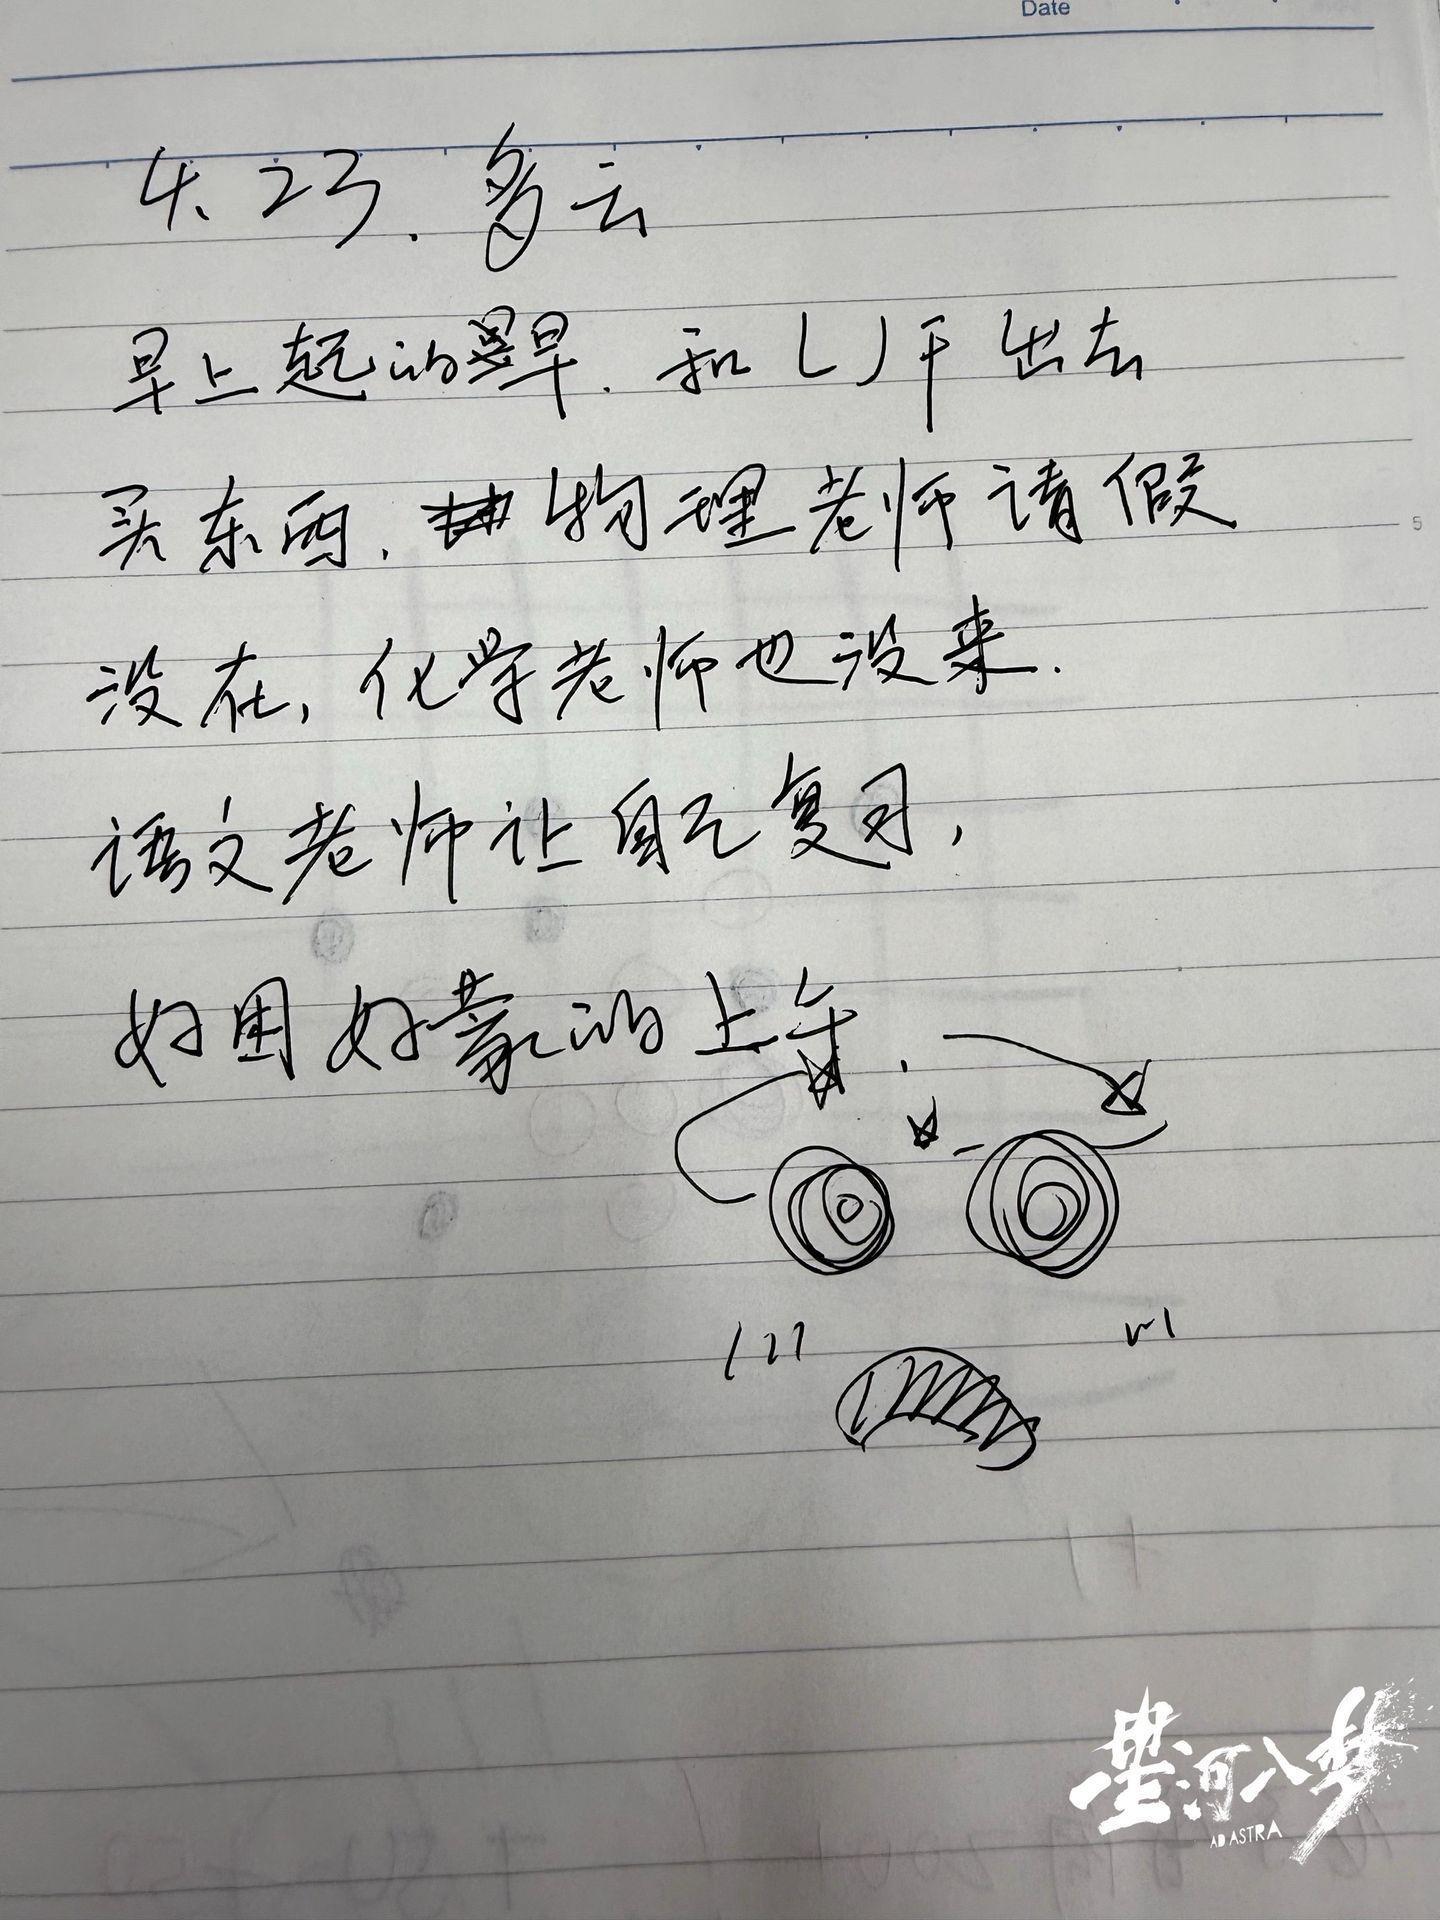 Date
4.23.多云
早上起的早.和LJF出去
买东西.物理老师请假
没在,化学老师也没来.
语文老师让自己复习,
好困好蒙的上午.
5
星河入梦
AD ASTRA